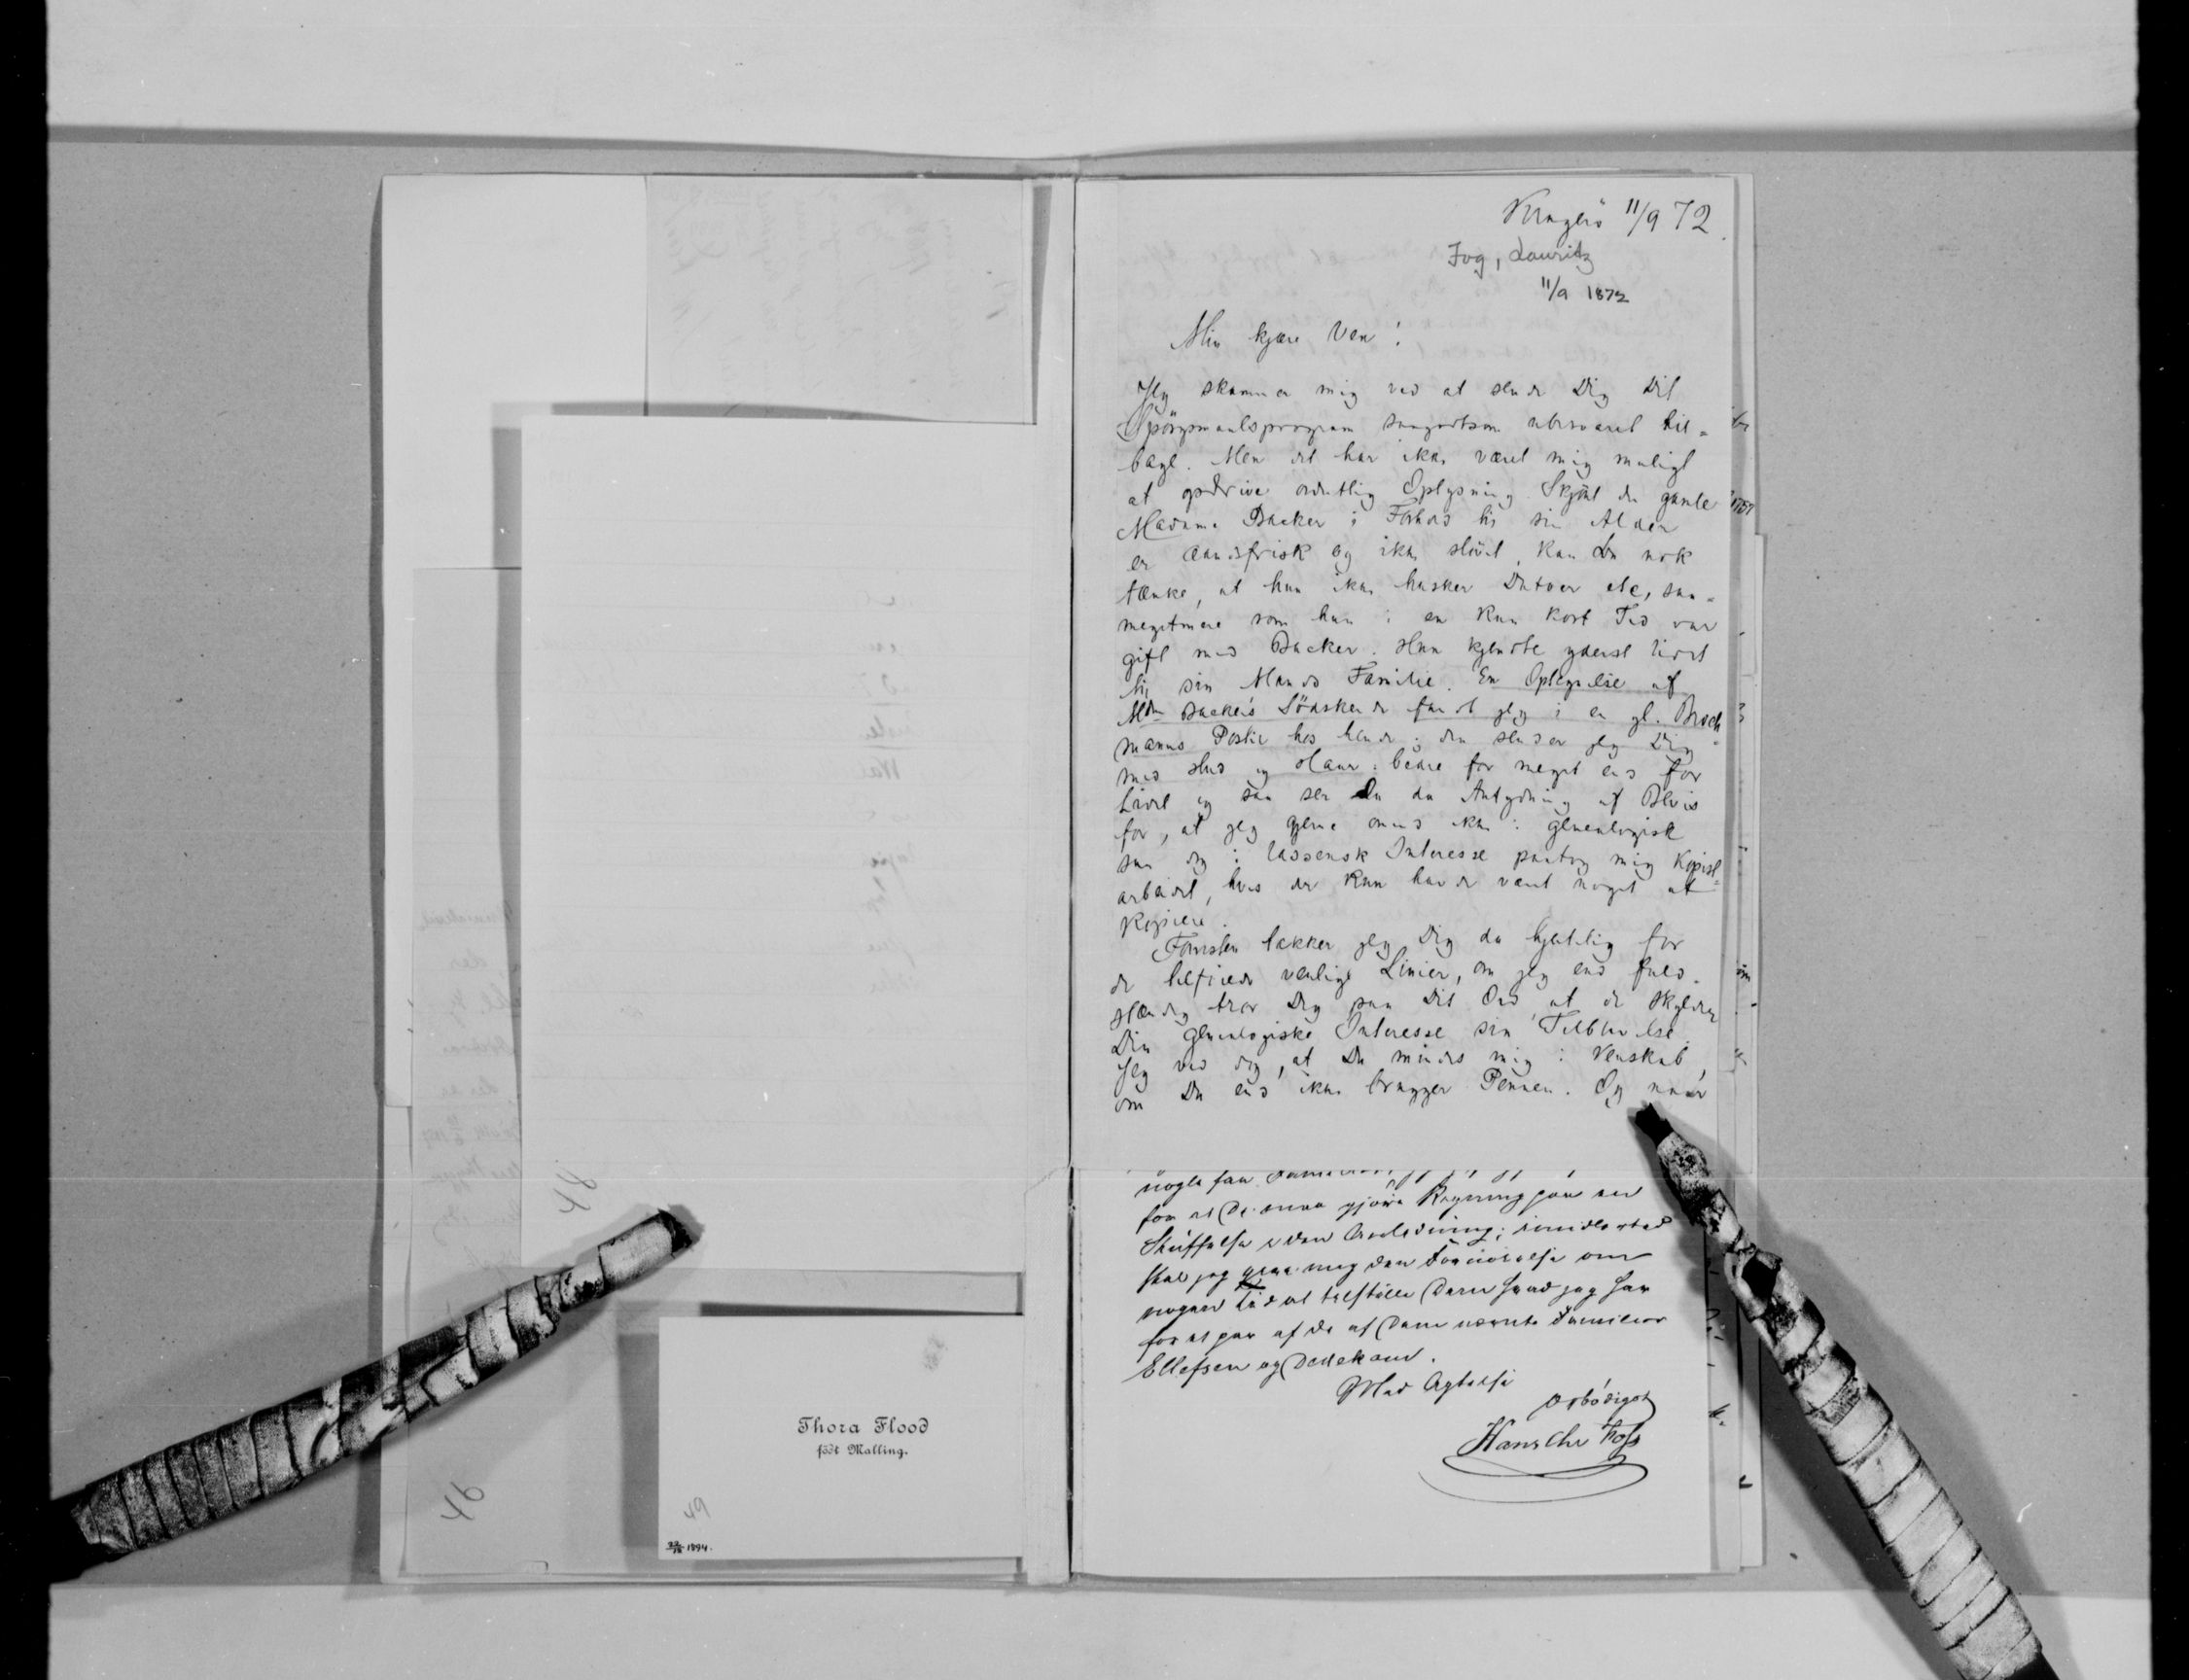 Thora Flood
født Malling.
49
1894.
46
11/9 72.
Fog, Lauritz
11/9 1872
Min kjære Ven!
Jeg skammer mig ved at sende Dig Dit
Spörgsmaalsprogram saagodtsom ubesvaret til-
bage. Men det har ikke været mig muligt
at opdrive ordentlig Oplysning. Skjönt den gamle
Madame Backer i Forhold til sin Alder
er aandsfrisk og ikke slövet, kan Du nok
tænke, at hun ikke husker Datoer etc, saa-
megetmere som hun i en kun kort Tid var
gift med Backer. Hun kjendte yderst lidet
til sin Mands Familie. En Optegnelse af
Mdm Backers Södskende fandt jeg i en gl. Broch-
manns Postil hos hende; den sender jeg Dig
med Hud og Haar: bedre for meget end for
lidet og saa ser Du da Antydning af Bevis
for, at jeg gjerne om end ikke i genealogisk
saa dog i Interesse paatog mig Kopist-
arbeidet, hvis der kun havde været noget at
kopiere.
Forresten takker jeg Dig da hjertelig for
de tilföiede venlige Linier, om jeg end fuld-
stændig tror Dig paa Dit Ord, at de skylder
Din genealogiske Interesse sin Tilblivelse.
Jeg ved dog, at Du mindes mig i Venskab,
om Du end ikke bruger Pennen. Og naar
nogle faa
for at De maa gjøre Regning paa en
Skuffelse i den Anledning; imidlertid
skal jeg gjøre mig den Fornöielse om
nogen tid at tilstille Dem hvad jeg har
for at gaa af de af Dem nævnte Familier
Ellefsen og Dedekam.
Med Agtelse
ærbødigst
Hans Chr